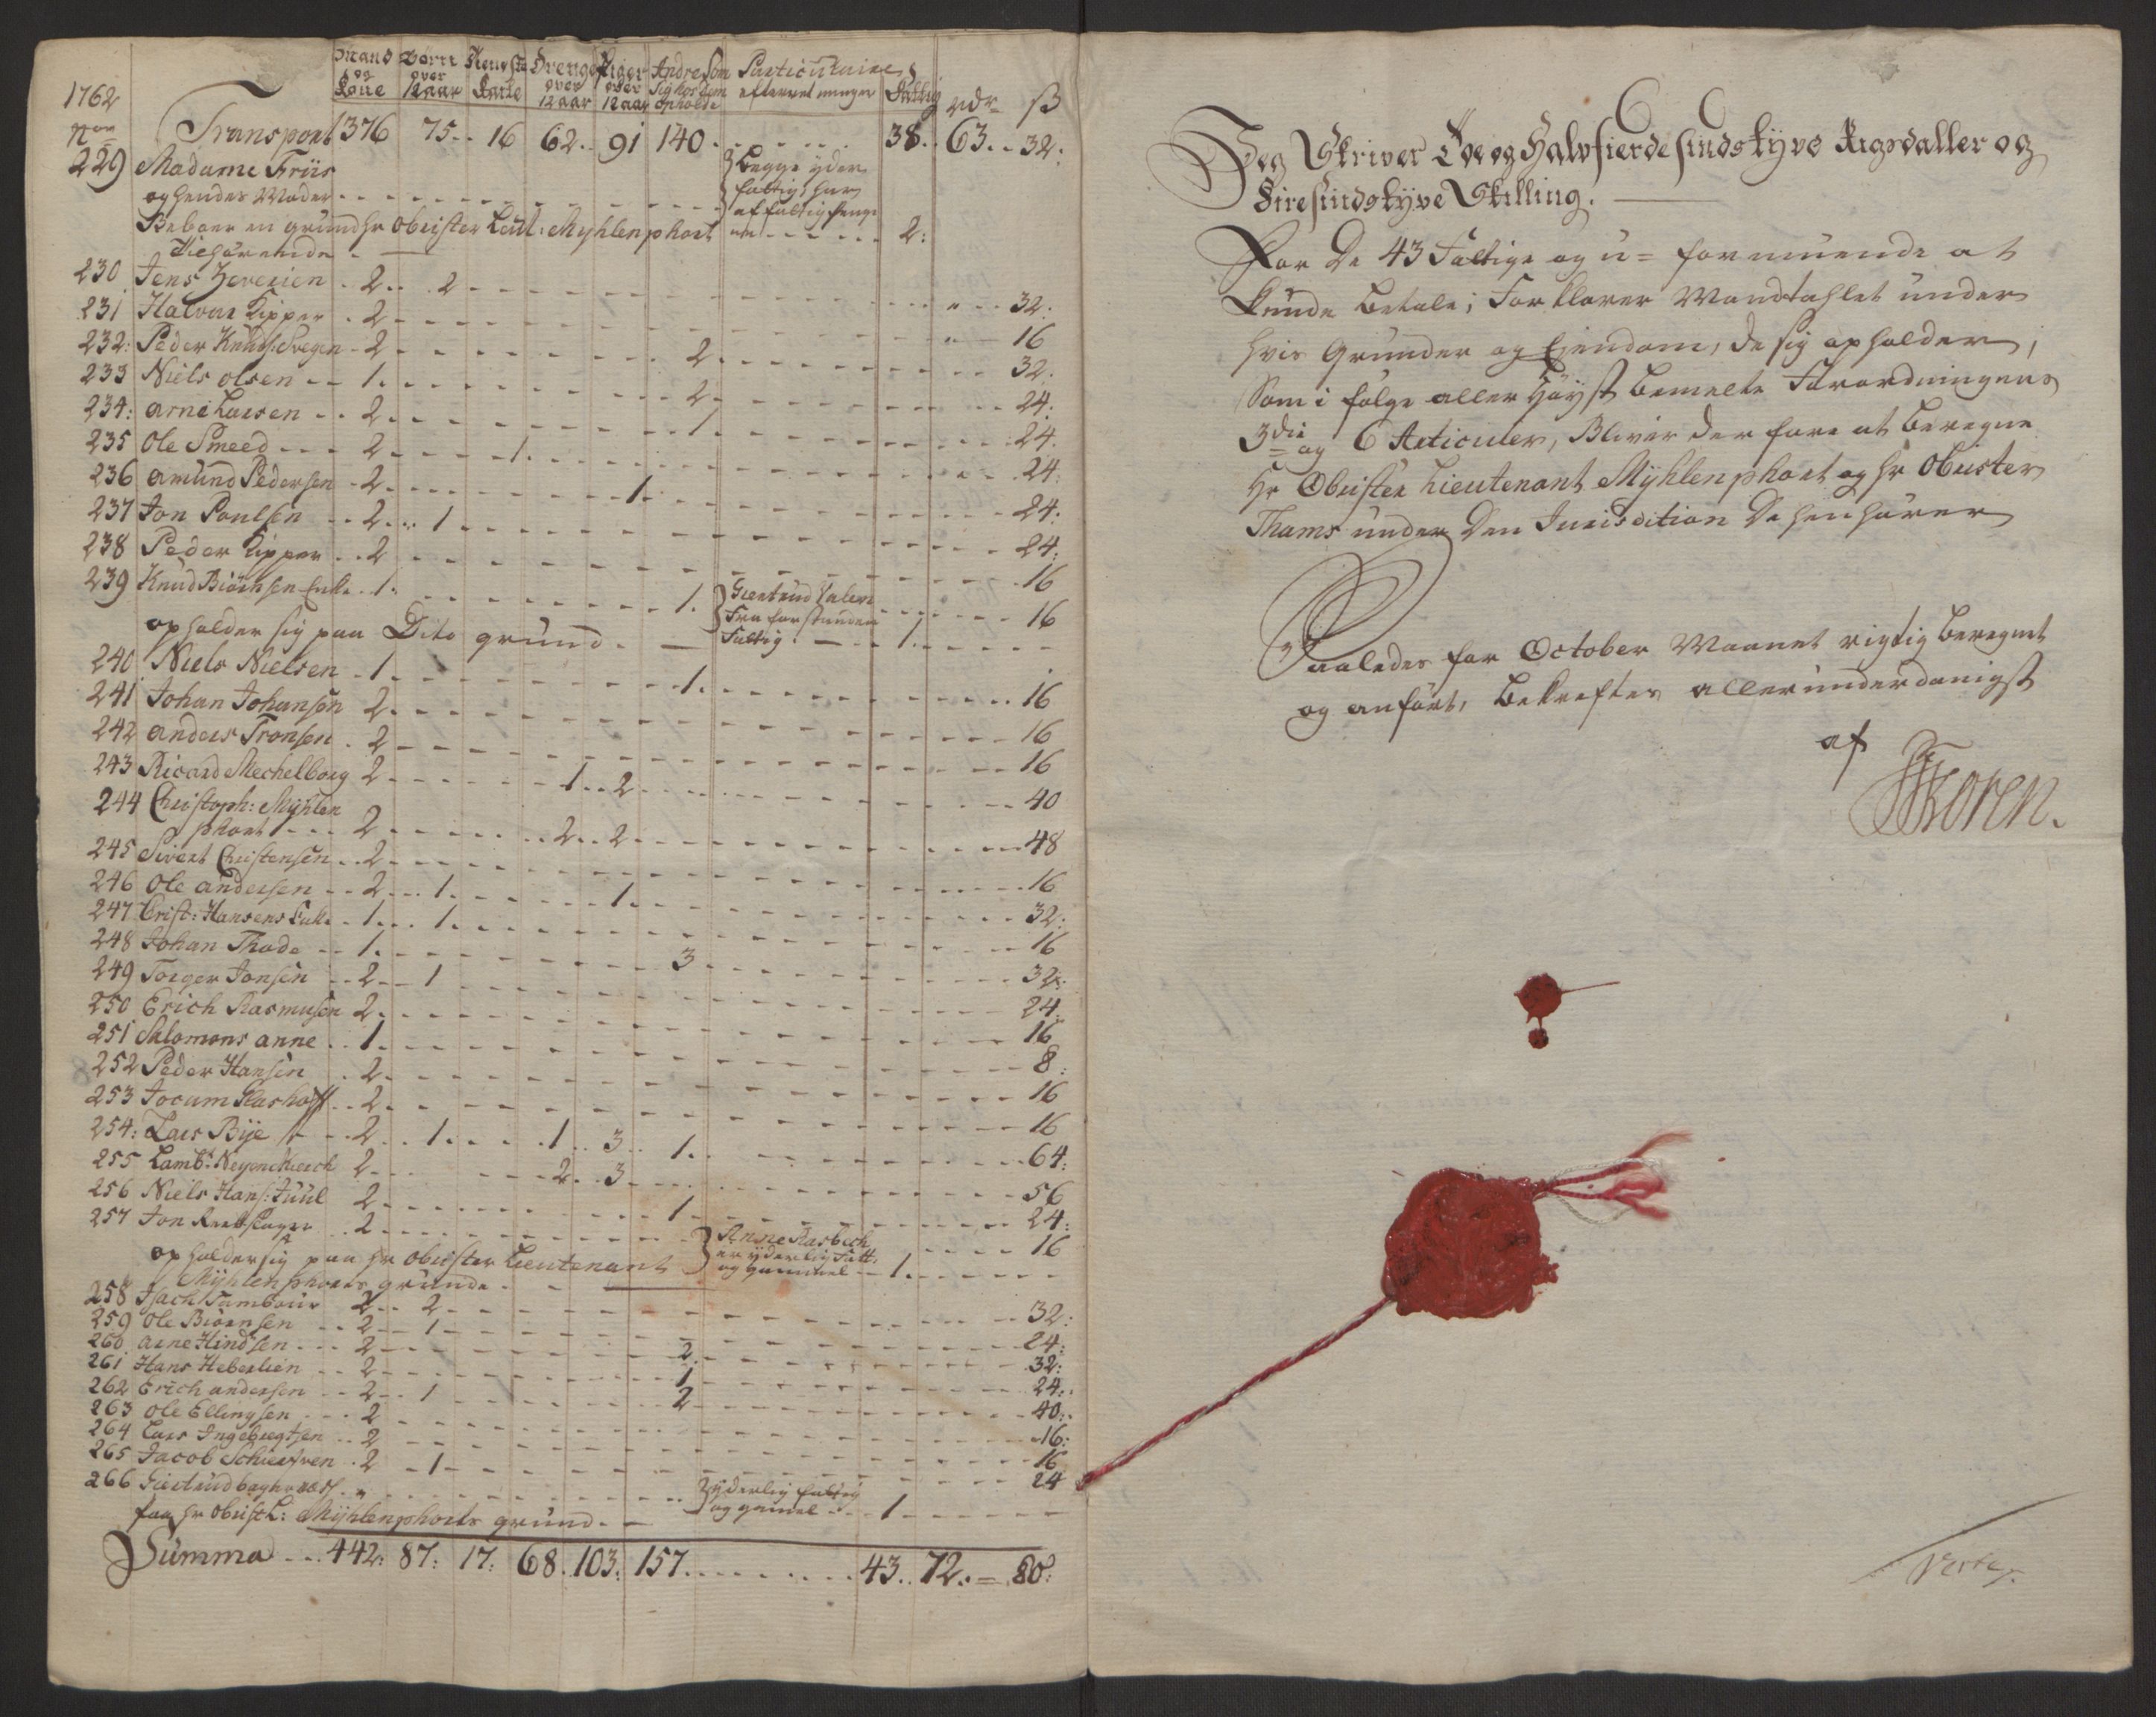 1762
Nov
Mand og Kone
Børn over 12 aar
Drenge over 12 aar
Piger over 12 aar
Andre Som Sig hos dem opholde
Particulaire efterretninger
Fattig
rdr ß
Transport 1376 75 16 62 91 140 38 63 32
229 Madame Friis og hendes Moder 2
Begge yder fattig, har af fattig penge
Beboer en grund hr Obrister Leut: Myhlenphort tilhørende
230 Jens 2 2 32
231 Halvor Kipper 2 16
232 Peder Knuds: Svegen 2 2 32
233 Niels olsen 1 2 24
234 arne Larsen 2 1 24
235 Ole Smeed 2 1 24
236 amund Pedersen 2 1 24
237 Jon Poulsen 2 1 24
238 Peder Kipper 2 16
239 Knud Biörnsen Enke 1 1 16
opholder sig paa Dito grund
Fattig 1
240 Niels Nielsen 1 1 16
241 Johan Johansøn 2 16
242 anders Tronsen 2 16
243 Ricard Mechelborg 2 1 2 40
244 Christoph: Myhlen
phort 2 2 2 48
245 Sivert Christensen 2 16
246 Ole andersen 2 1 1 32
247 Crist: Hansens Enke 1 1 16
248 Johan Thode 1 3 32
249 Torger Jonsen 2 1 24
250 Erich Rasmusen 2 16
251 Salomons anne 1 8
252 Peder Hansen 2 16
253 Jocum 2 16
254 Lars Bije 2 1 1 3 1 64
255 Lamb: 2 2 3 56
256 Niels Hans: Juul 2 1 24
257 Jon 2 16
opholder sig paa hr Obrister Lieutenant
Myhlenphorts grunde
Anne
er yderlig Fatt: og gammel 1
258 Isach Tambour 2 2 32
259 Ole Biørnsen 2 1 24
260 arne Hindsen 2 2 32
261 Hans Heberlien 2 1 24
262 Erich andersen 2 1 2 40
263 Ole Ellingsen 2 16
264 Lars Ingebregtsen 2 16
265 Jacob 2 1 24
266 Giertrud
yderlig fattig og gamel 1
paa hr Obrist L: Myhlenphorts grund
Summa 442 87 17 68 103 157 43 72 80
Jeg Skriver Toe og Halvfierdesindstyve Rigsdaller og
Firesindstyve Skilling.
For De 43 Fattige og u= formuende at
kunde betale; Forklarer Mandtahlet under
hvis Grunder og Eiendom, de sig opholder,
Som i følge aller Høyst bemelte Forordningens
3die og 6 Articuler, Bliver derfore at beregne
Hr Obrister Lieutenant Myhlenphort og hr Obrister
Thams under Den Jurisdition De henhører
Saaledes for October Maanet rigtig beregnet
og anført, bekræftes allerunderdanigst
af
Koren.